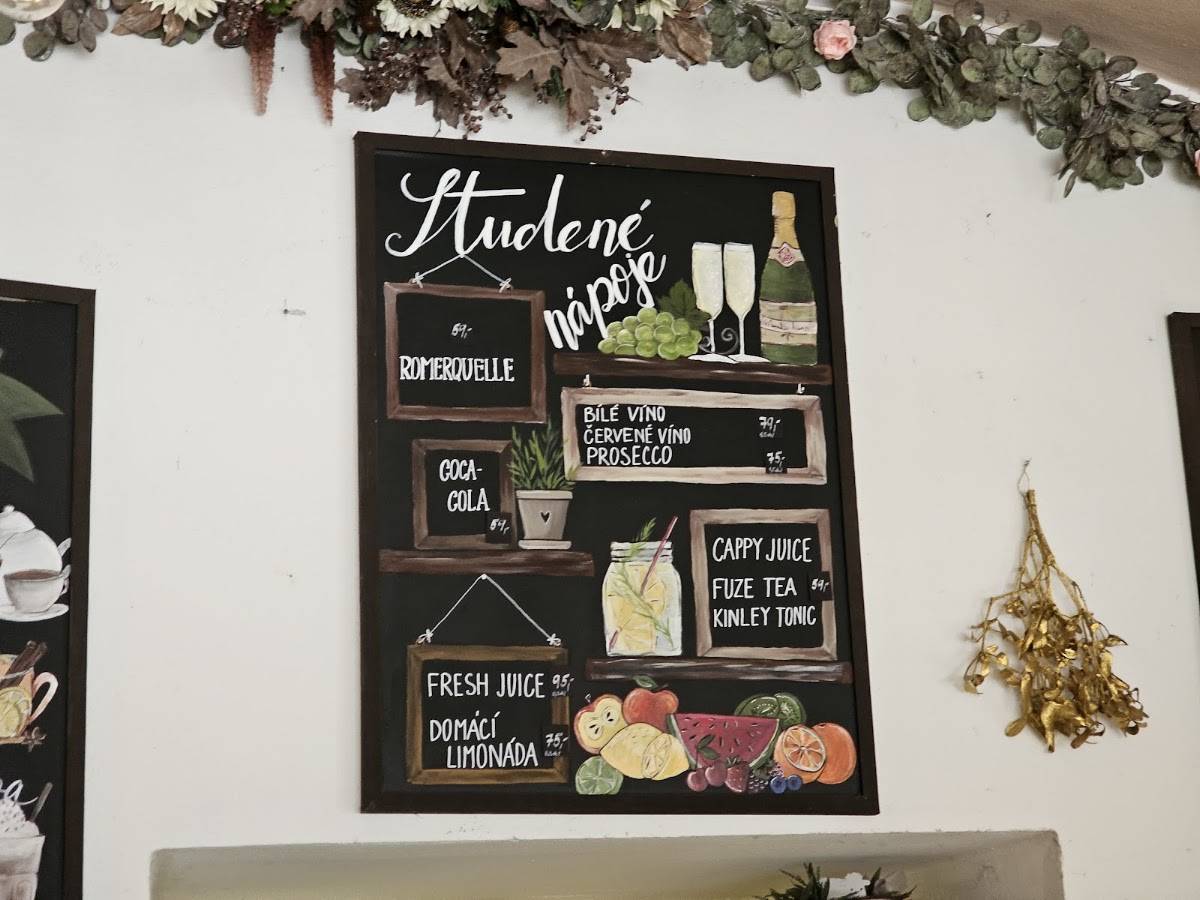 Studené
nápoje
59,-
ROMERQUELLE
BÍLÉ VÍNO 79,-
ČERVENÉ VÍNO
PROSECCO 75,-
COCA-
COLA
59,-
CAPPY JUICE
FUZE TEA 59,-
KINLEY TONIC
FRESH JUICE 95,-
DOMÁCÍ
LIMONÁDA 75,-